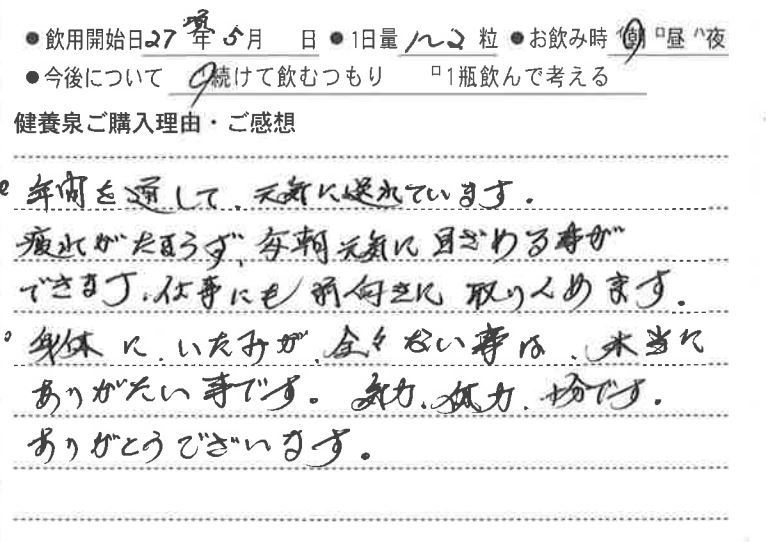 ●飲用開始日27年頃5月 日 ●1日量 1〜2 粒 ●お飲み時 イ朝 ロ昼 ハ夜
●今後について イ続けて飲むつもり ロ1瓶飲んで考える
健養泉ご購入理由・ご感想
年間を通して、元気に送れています。
疲れがたまらず、毎朝元気に目ざめる事が
できます、仕事にも前向きに取りくめます。
身体に、いたみが、全々ない事は、本当に
ありがたい事です。気力、体力、十分です。
ありがとうございます。